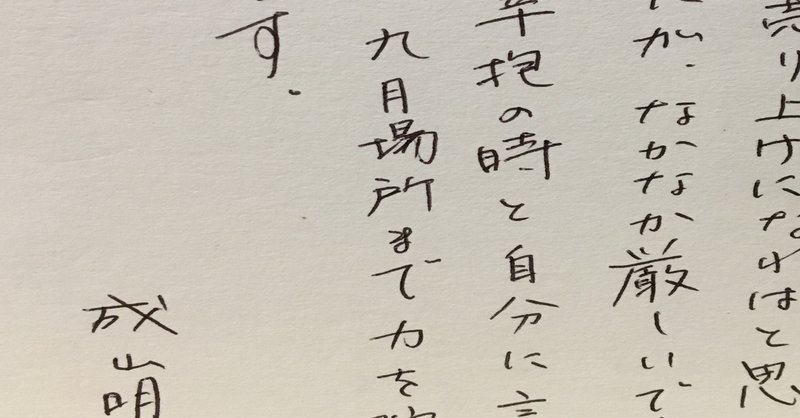 売り上げになればと思
が、なかなか厳しいで
辛抱の時と自分に言
九月場所まで力を
す。
成山明